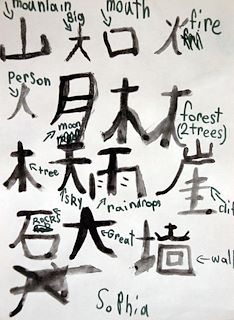 mountain big mouth fire
山 大 口 火
person
人 月 林 forest
moon (2 trees)
木 ← tree 天 雨 崖
sky raindrops cliff
石 大 墙
rocks Great wall
Sophia